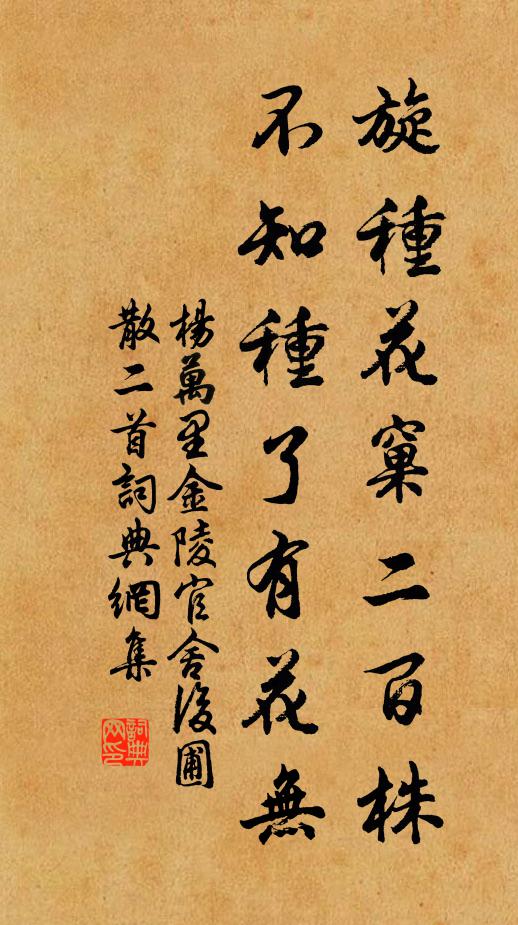 旋種花窠二百株
不知種了有花無
楊萬里金陵官舍後圃
散二首詞典網集
詞典
网印